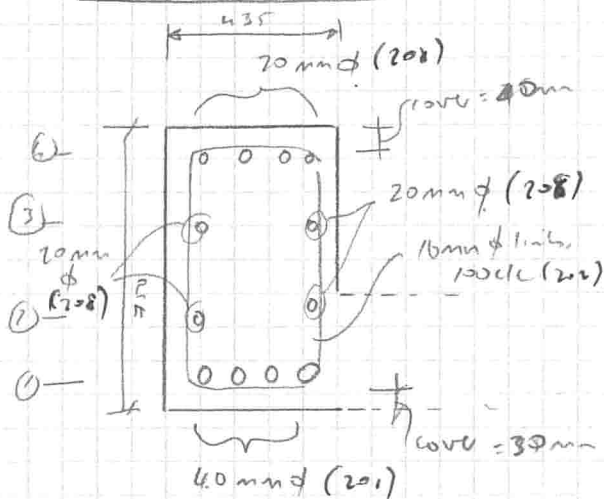 435
20 mm ϕ (208)
cover = 40mm
④
③
20 mm ϕ (208)
20 mm
ϕ
(208)
②
10mm ϕ links.
①
cover = 30 mm
40 mm ϕ (201)